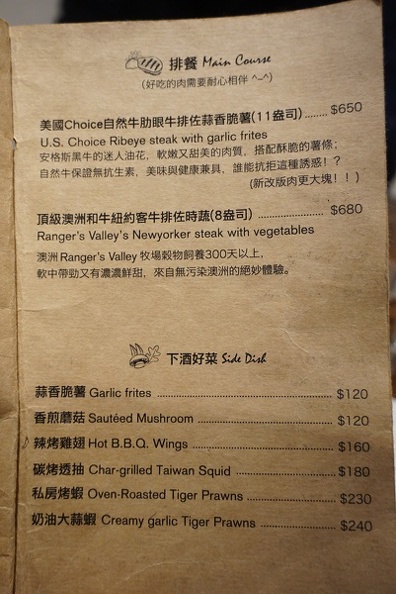 排餐 Main Course
(好吃的肉需要耐心相伴 ^-^)
美國Choice自然牛肋眼牛排佐蒜香脆薯(11盎司)....... $650
U.S. Choice Ribeye steak with garlic frites
安格斯黑牛的迷人油花，軟嫩又甜美的肉質，搭配酥脆的薯條；
自然牛保證無抗生素，美味與健康兼具，誰能抗拒這種誘惑！？
(新改版肉更大塊！！)
頂級澳洲和牛紐約客牛排佐時蔬(8盎司) .................... $680
Ranger's Valley's Newyorker steak with vegetables
澳洲 Ranger's Valley 牧場穀物飼養300天以上，
軟中帶勁又有濃濃鮮甜，來自無污染澳洲的絕妙體驗。
下酒好菜 Side Dish
蒜香脆薯 Garlic frites ........................ $120
香煎蘑菇 Sautéed Mushroom ........................ $120
辣烤雞翅 Hot B.B.Q. Wings ........................ $160
碳烤透抽 Char-grilled Taiwan Squid ........................ $180
私房烤蝦 Oven-Roasted Tiger Prawns ........................ $230
奶油大蒜蝦 Creamy garlic Tiger Prawns ........................ $240